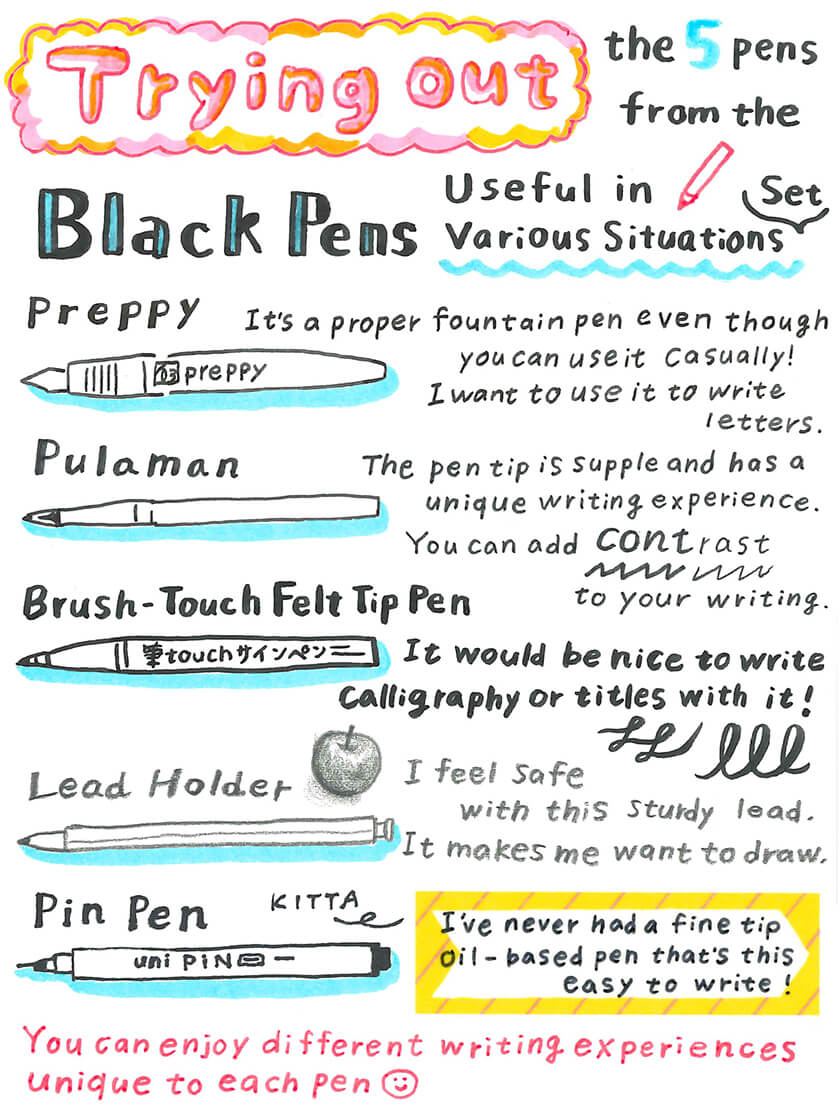 Trying out
the 5 pens
from the
Black Pens
Useful in
Various Situations
Set
Preppy
It's a proper fountain pen even though
you can use it casually!
I want to use it to write
letters.
03 preppy
Pulaman
The pen tip is supple and has a
unique writing experience.
You can add contrast
to your writing.
Brush-Touch Felt Tip Pen
筆touchサインペン
It would be nice to write
calligraphy or titles with it!
Lead Holder
I feel safe
with this sturdy lead.
It makes me want to draw.
Pin Pen
KITTA
uni PiN
I've never had a fine tip
oil-based pen that's this
easy to write!
You can enjoy different writing experiences
unique to each pen